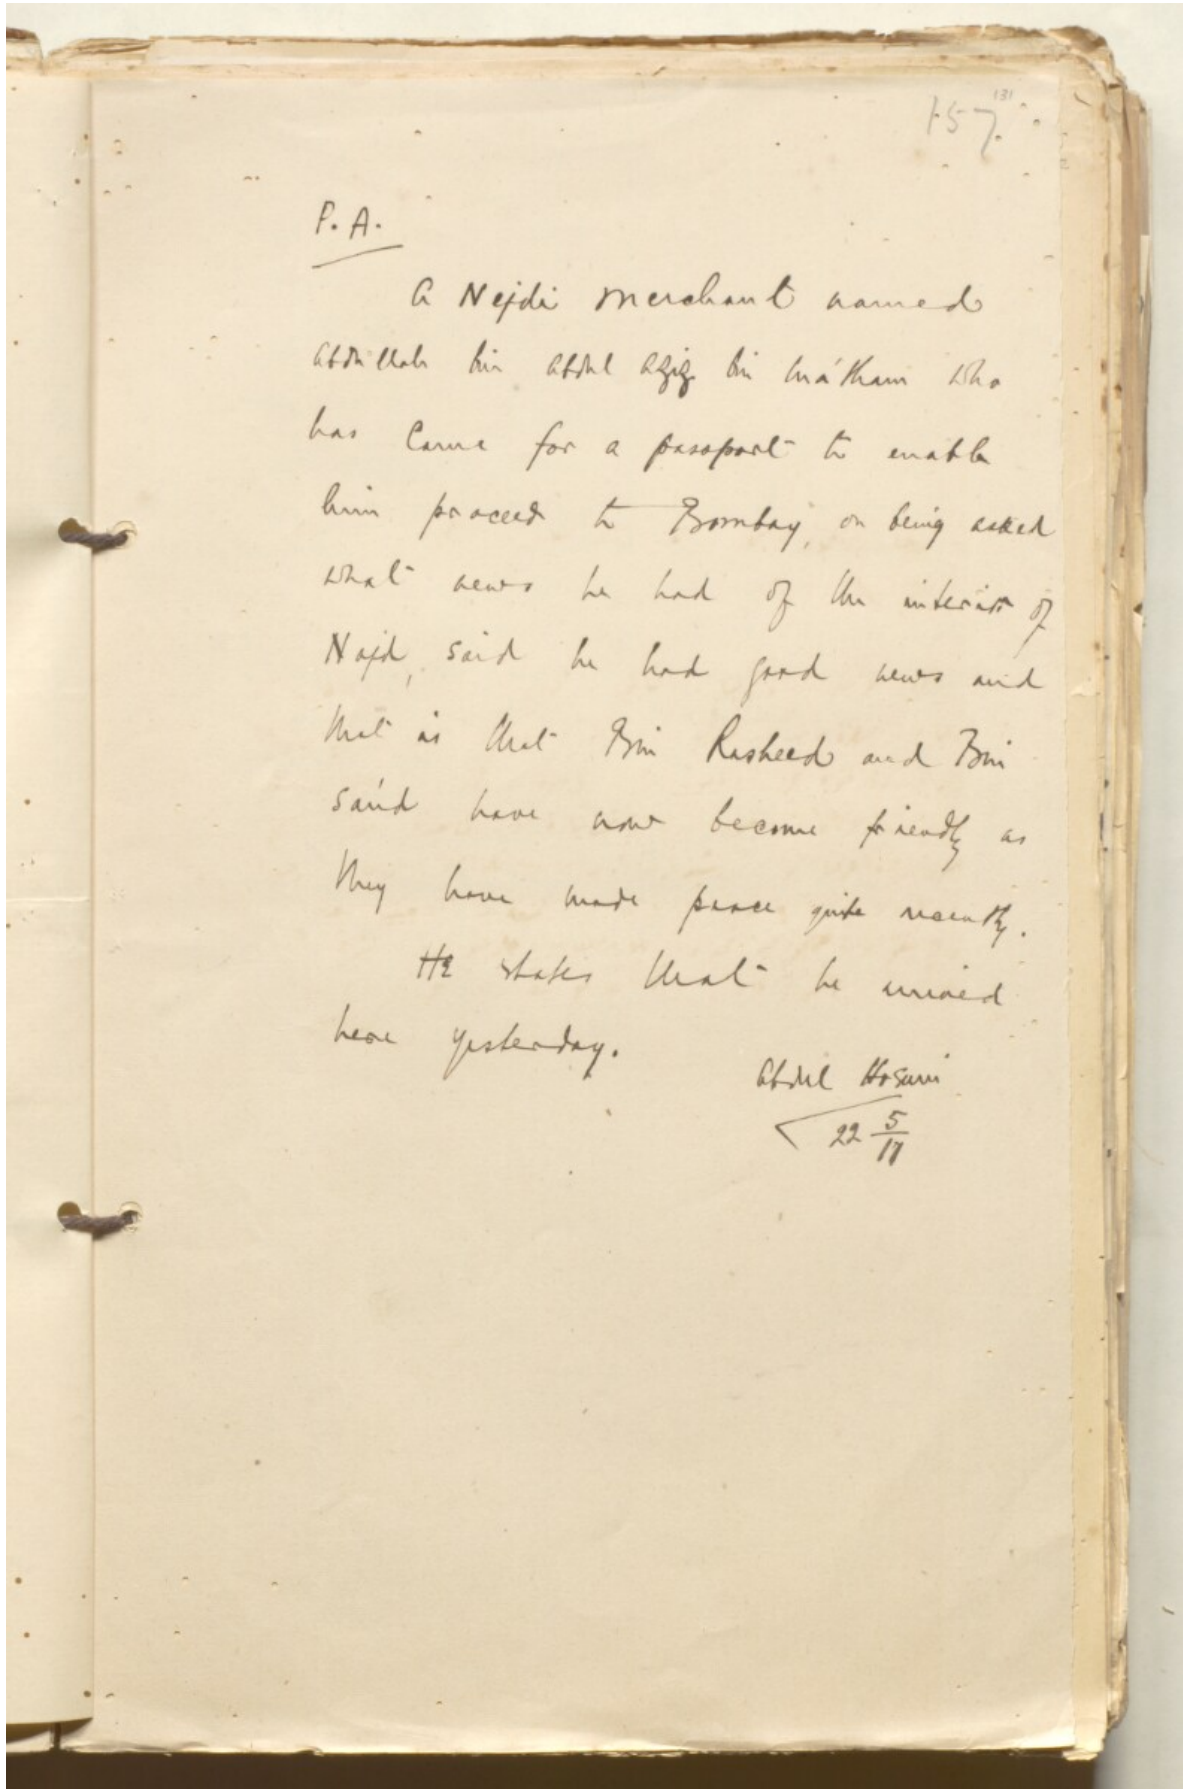 131
157
P. A.
A Nejdi merchant named
Abdullah bin Abdul Aziz bin Má'tham who
has come for a passport to enable
him proceed to Bombay, on being asked
what news he had of the interior of
Najd, said he had good news and
that is that Bin Rasheed and Bin
Sáúd have now become friendly as
they have made peace quite recently.
He states that he arrived
here yesterday.
Abdul
22 5/17